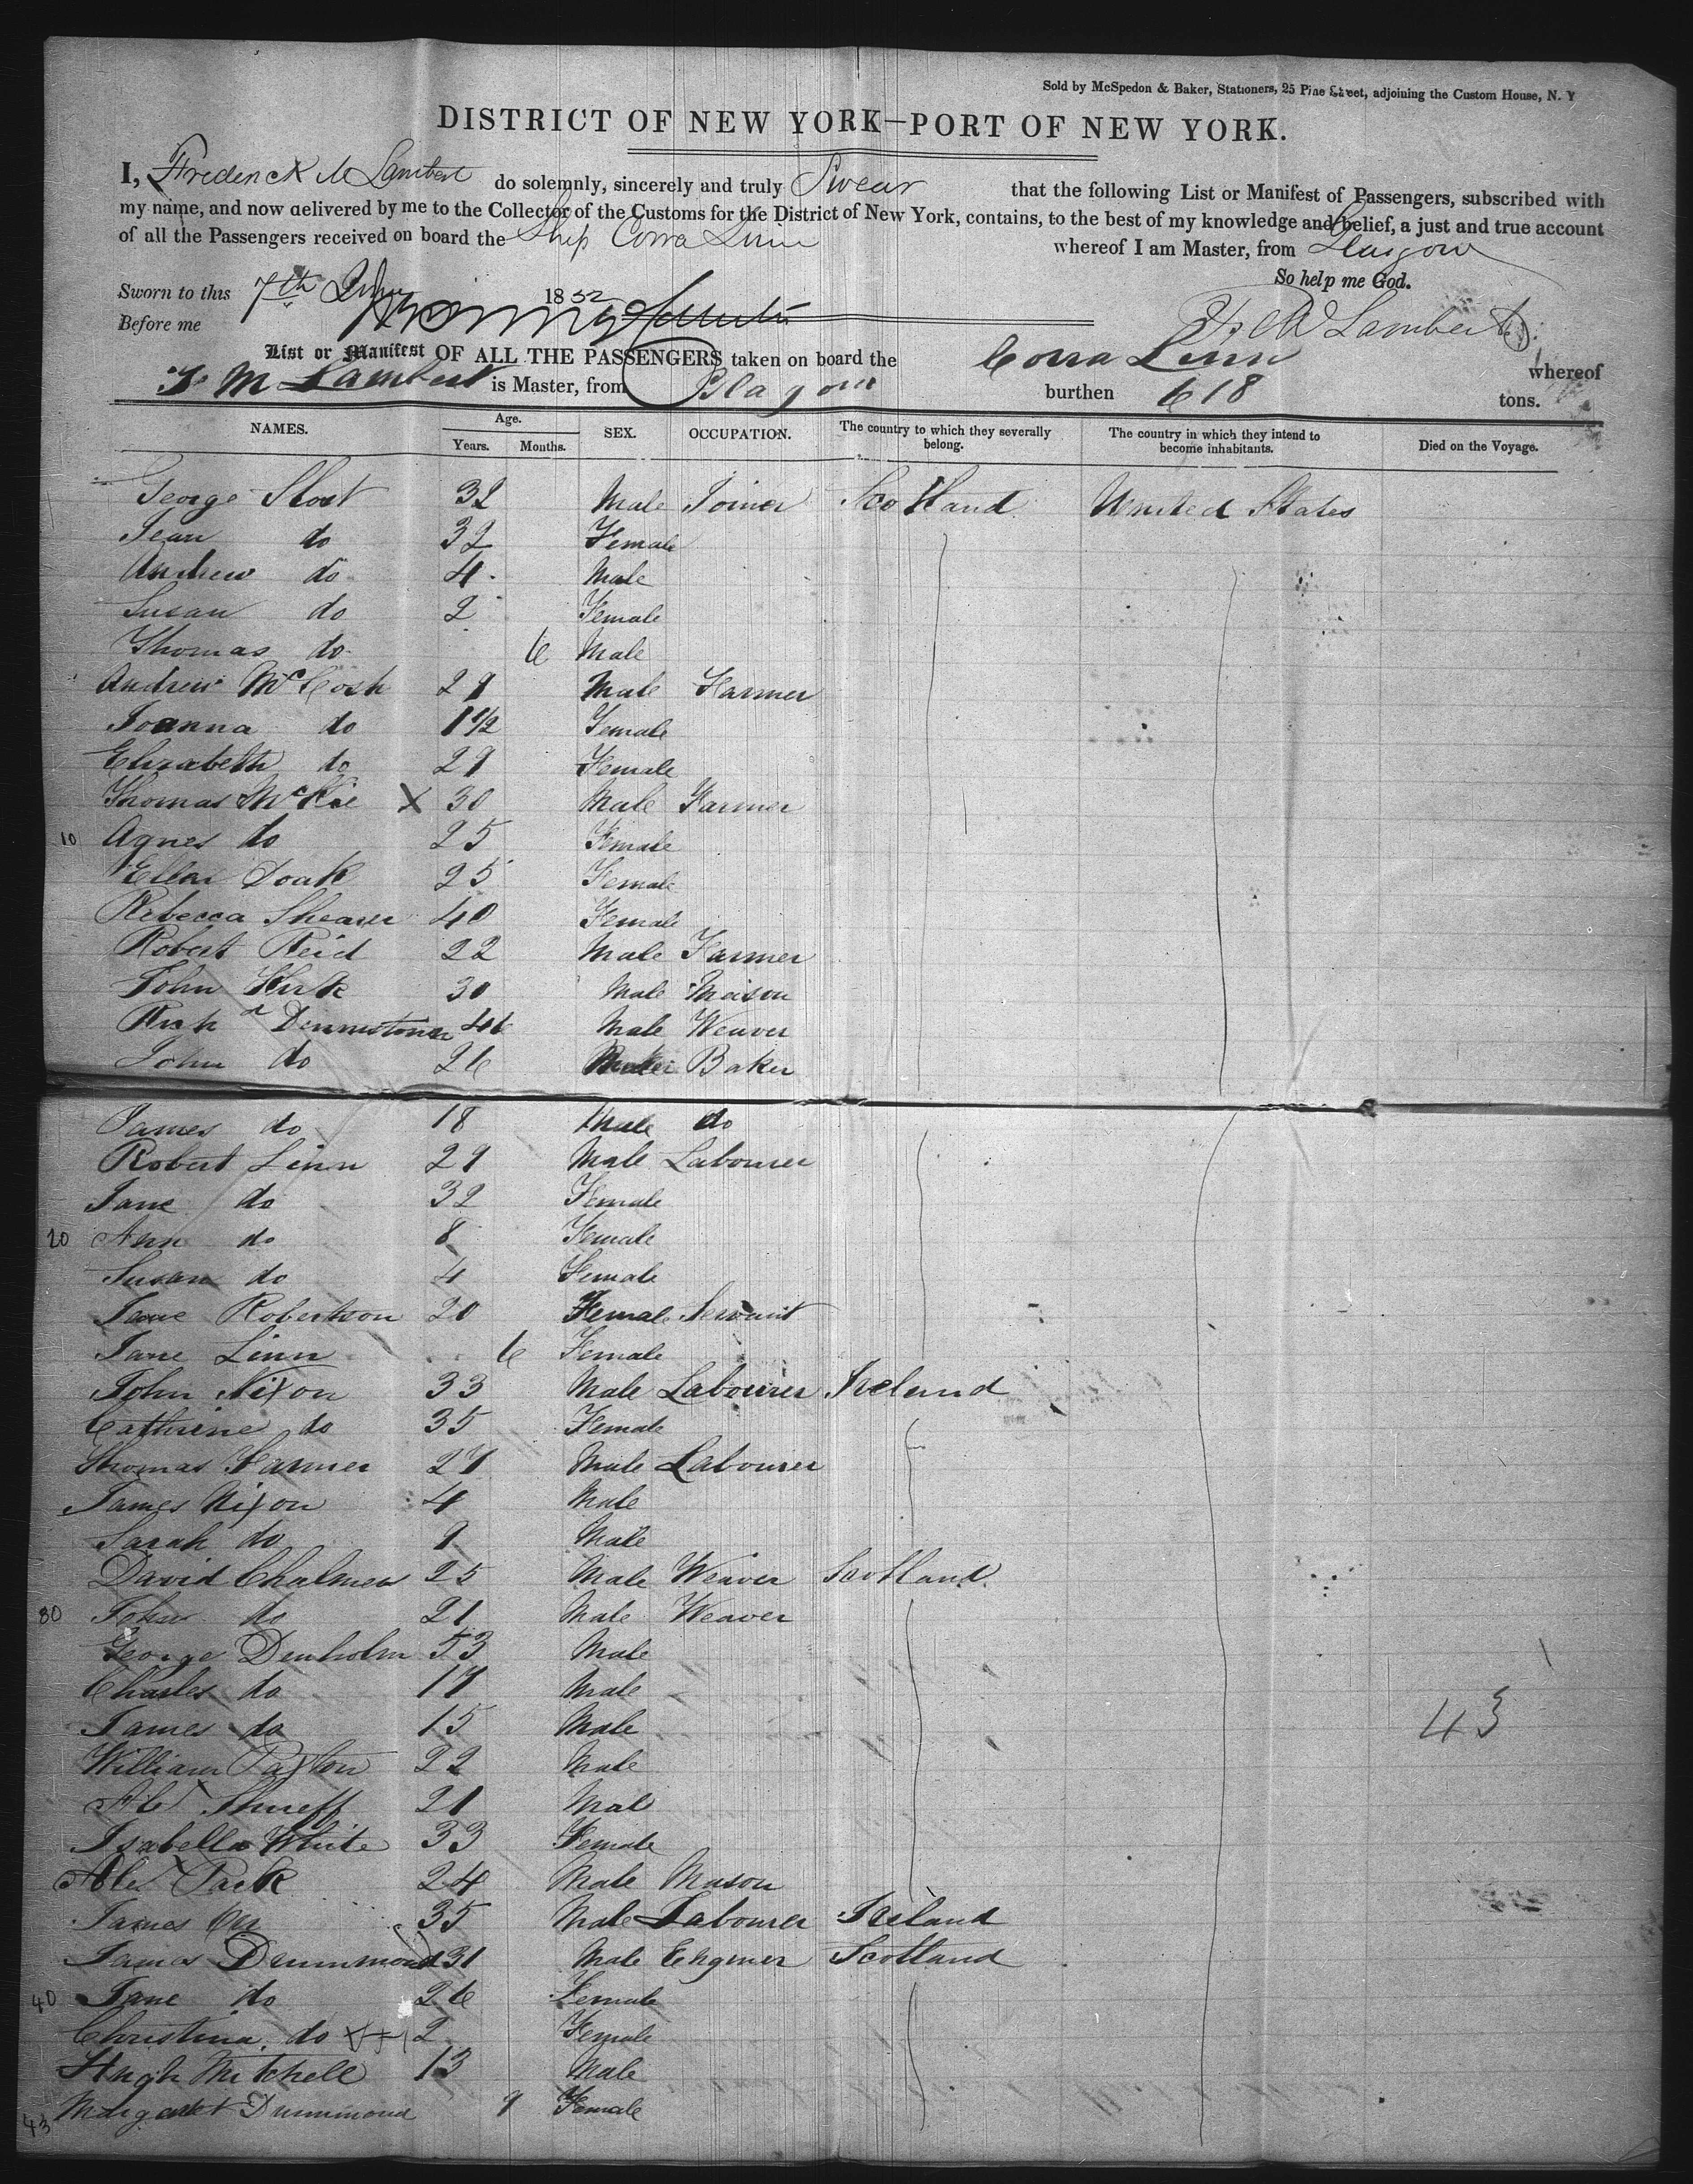 Sold by McSpedon & Baker, Stationers, 25 Pine Street, adjoining the Custom House, N. Y
DISTRICT OF NEW YORK—PORT OF NEW YORK.
I, Frederick M Lambert do solemnly, sincerely and truly Swear that the following List or Manifest of Passengers, subscribed with
my name, and now delivered by me to the Collector of the Customs for the District of New York, contains, to the best of my knowledge and belief, a just and true account
of all the Passengers received on board the Ship Corra Linn whereof I am Master, from Glasgow
So help me God.
Sworn to this 7th 1852
Before me
F. M Lambert
List or Manifest OF ALL THE PASSENGERS taken on board the Corra Linn whereof
F M Lambert is Master, from Glasgow burthen 618 tons.
NAMES. Age. Years. Months. SEX. OCCUPATION. The country to which they severally belong. The country in which they intend to become inhabitants. Died on the Voyage.
George Stout 32 Male Joiner Scotland United States
Jean do 32 Female
Andrew do 4 Male
Susan do 2 Female
Thomas do 6 Male
Andrew McCosh 29 Male Farmer
Joanna do 1 1/2 Female
Elizabeth do 29 Female
Thomas McKie X 30 Male Farmer
10 Agnes do 25 Female
Ellen Doak 25 Female
Rebecca Shearer 40 Female
Robert Reid 22 Male Farmer
John Kirk 30 Male Mason
Richd Dennistoun 46 Male Weaver
John do 26 Male Baker
James do 18 Male do
Robert Linn 29 Male Labourer
Jane do 32 Female
20 Ann do 8 Female
Susan do 4 Female
Jane Robertson 20 Female Servant
Jane Linn 6 Female
John Nixon 33 Male Labourer Ireland
Cathrine do 35 Female
Thomas Farmer 27 Male Labourer
James Nixon 4 Male
Sarah do 9 Male
David Chalmers 25 Male Weaver Scotland
30 John do 21 Male Weaver
George Denholm 53 Male
Charles do 17 Male
James do 15 Male 43
William Paxton 22 Male
Alex Shireff 21 Mal
Isabella White 33 Female
Alex Park 24 Male Mason
James Orr 35 Male Labourer Ireland
James Drummond 31 Male Enginer Scotland
40 Jane do 26 Female
Christina do 2 Female
Hugh Mitchell 13 Male
43 Margaret Drummond 9 Female